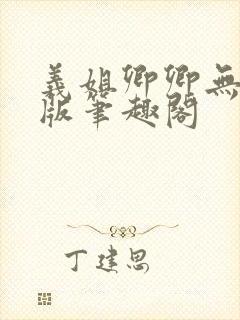 義姐卿卿無
版筆趣閣
丁建思